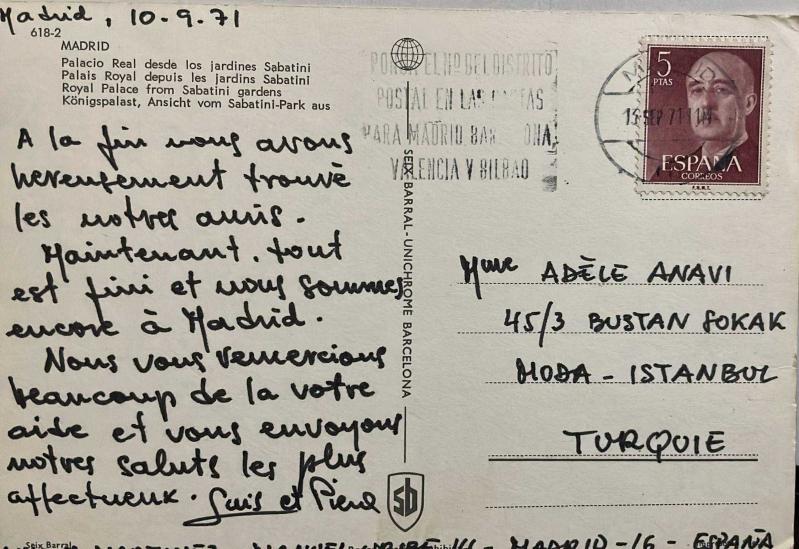 Madrid, 10.9.71
618-2
MADRID
Palacio Real desde los jardines Sabatini
Palais Royal depuis les jardins Sabatini
Royal Palace from Sabatini gardens
Königspalast, Ansicht vom Sabatini-Park aus
A la fin nous avons
hereusement trouvè
les notres amis.
Maintenant, tout
est fini et nous sommes
encore à Madrid.
Nous vous remercions
beaucoup de la votre
aide et vous envoyons
notres saluts les plus
affectueux. Luis et
SEIX BARRAL-UNICHROME BARCELONA
sb
PONGA EL Nº DEL DISTRITO
POSTAL EN LAS CARTAS
PARA MADRID BARCELONA,
VALENCIA Y BILBAO
SEP 71
5
PTAS
ESPAÑA
CORREOS
F.N.M.T.
Mme ADÈLE ANAVI
45/3 BUSTAN SOKAK
MODA - ISTANBUL
TURQUIE
Seix Barral
MADRID-16 - ESPAÑA